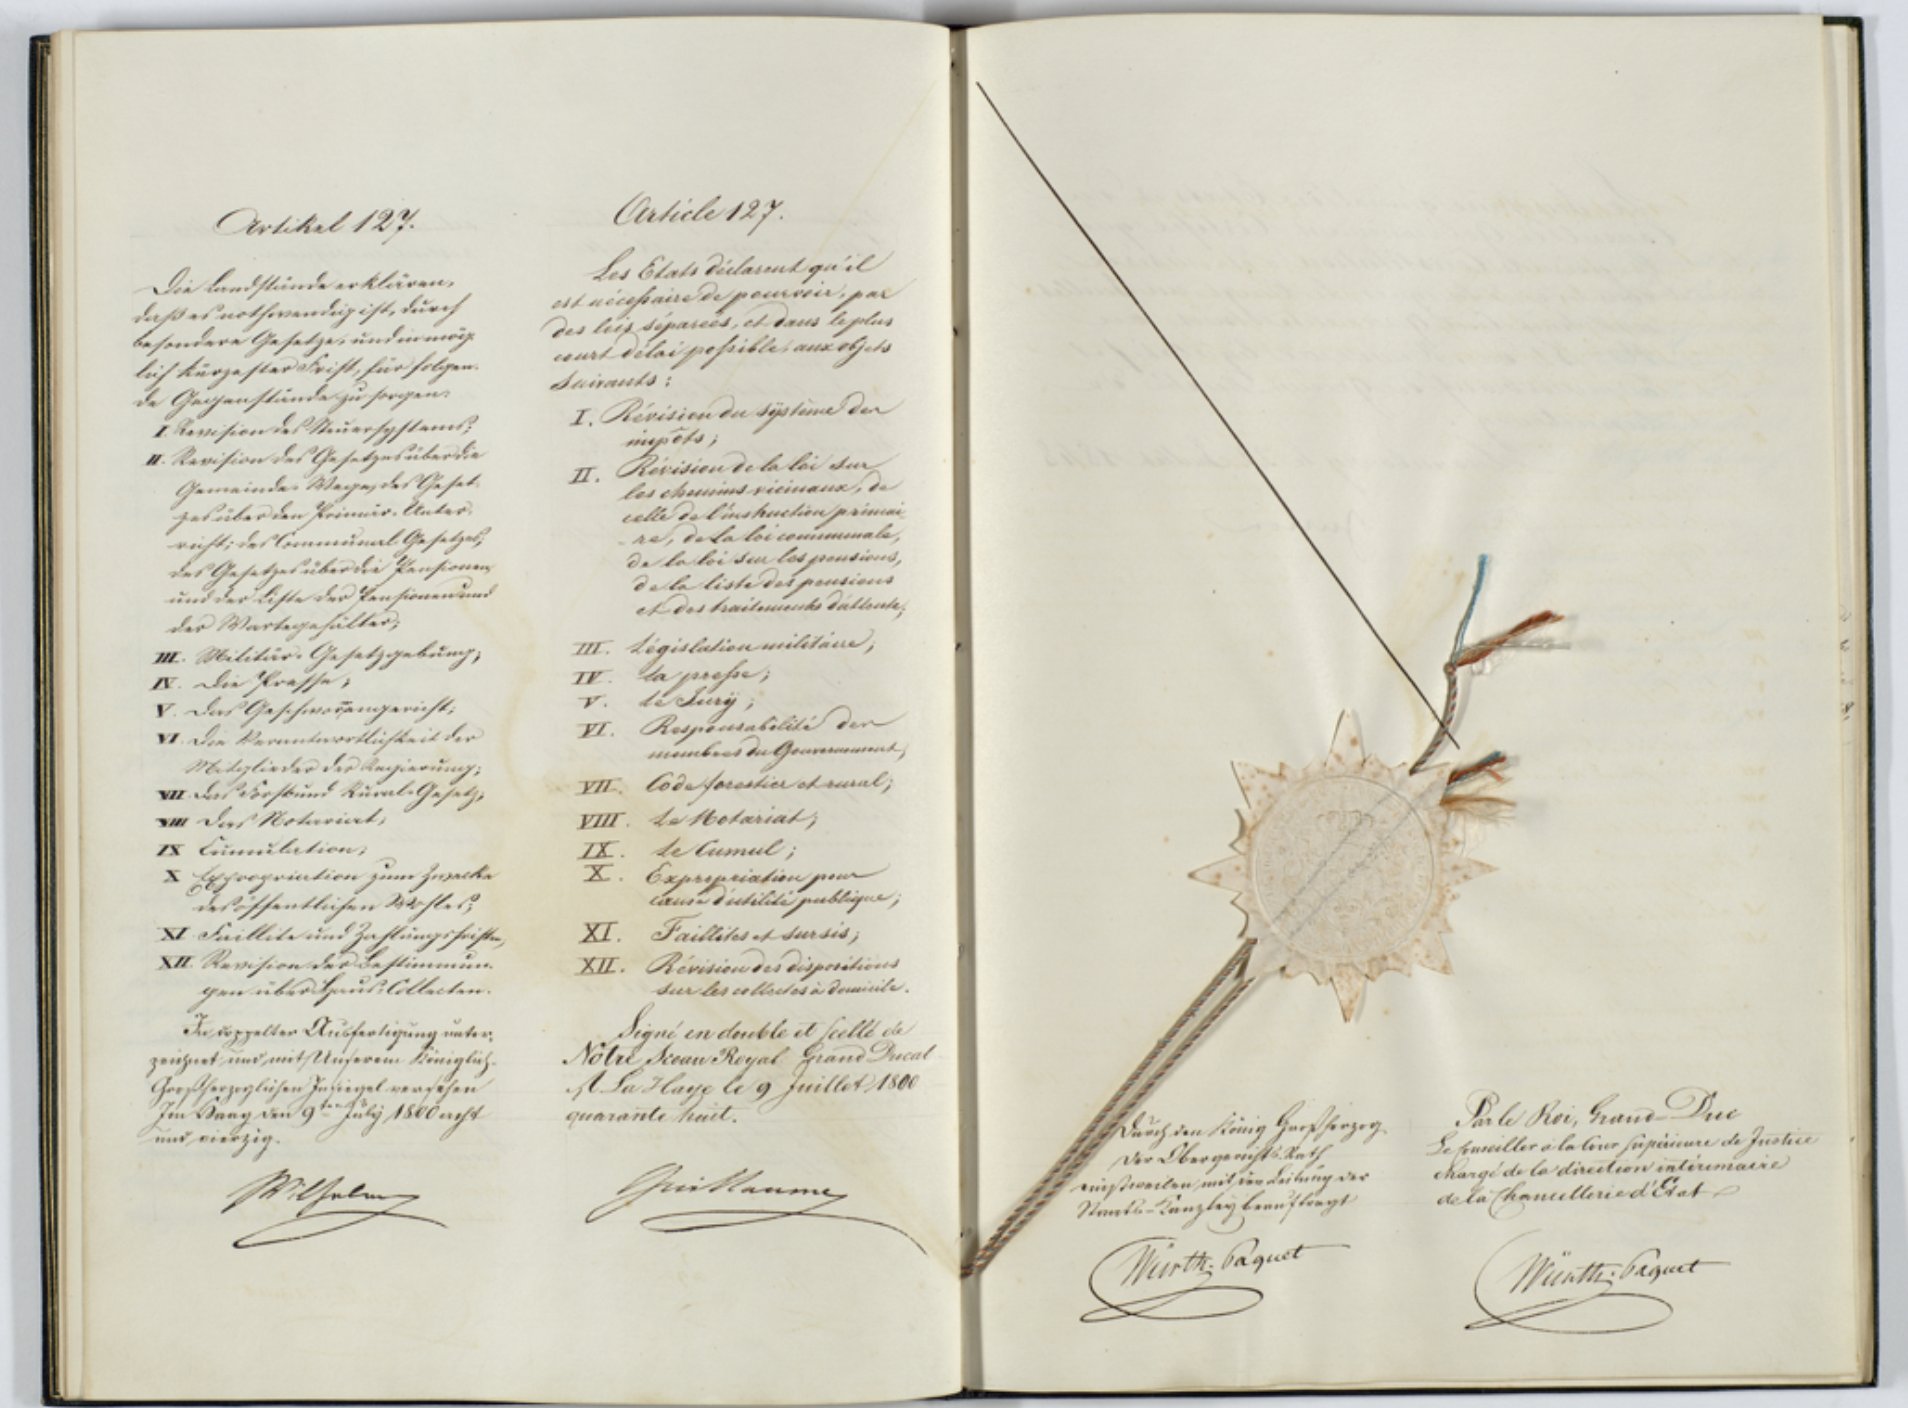 Artikel 127.
Die Landstände erklären,
daß es nothwendig ist, durch
besondere Gesetze, und in mög-
lich kürzester Frist, für folgen-
de Gegenstände zu sorgen:
I. Revision des Steuersystems;
II. Revision des Gesetzes über die
Gemeinde-Wege, des Geset-
zes über den Primär-Unter-
richt; des Communal-Gesetzes,
des Gesetzes über die Pensionen
und der Liste der Pensionen und
der Wartegehälter;
III. Militär-Gesetzgebung;
IV. Die Presse;
V. Das Geschworengericht;
VI. Die Verantwortlichkeit der
Mitglieder der Regierung;
VII. Das Forst und Rural-Gesetz;
VIII Das Notariat;
IX Cumulation;
X Expropriation zum Zwecke
des öffentlichen Wohles;
XI. Faillite und Zahlungsfristen,
XII. Revision der Bestimmun-
gen über Haus-Collecten.
In doppelter Ausfertigung unter-
zeichnet und mit Unserem Königlich-
Großherzoglichen Insiegel versehen
Im Haag den 9ten July 1800 acht
und vierzig.
Wilhelm
Article 127.
Les Etats déclarent qu'il
est nécessaire de pourvoir, par
des lois séparées, et dans le plus
court délai possible, aux objets
suivants:
I. Révision du système des
impôts;
II. Révision de la loi sur
les chemins vicinaux, de
celle de l'instruction primai-
re, de la loi communale,
de la loi sur les pensions,
de la liste des pensions
et des traitements d'attente;
III. Législation militaire;
IV. La presse;
V. Le Jury;
VI. Responsabilité des
membres du Gouvernement;
VII. Code forestier et rural;
VIII. Le Notariat;
IX. Le Cumul;
X. Expropriation pour
cause d'utilité publique;
XI. Faillites et sursis;
XII. Révision des dispositions
sur les collectes à domicile.
Signé en double et scellé de
Notre Sceau Royal Grand Ducal
A La Haye le 9 Juillet 1800
quarante huit.
Guillaume
Durch den König Großherzog.
Der Obergerichts-Rath
einstweilen mit der Leitung der
Staats-Kanzley beauftragt
Würth-Paquet
Par le Roi, Grand-Duc
Le Conseiller à la Cour supérieure de Justice
chargé de la direction intérimaire
de la Chancellerie d'Etat
Würth-Paquet